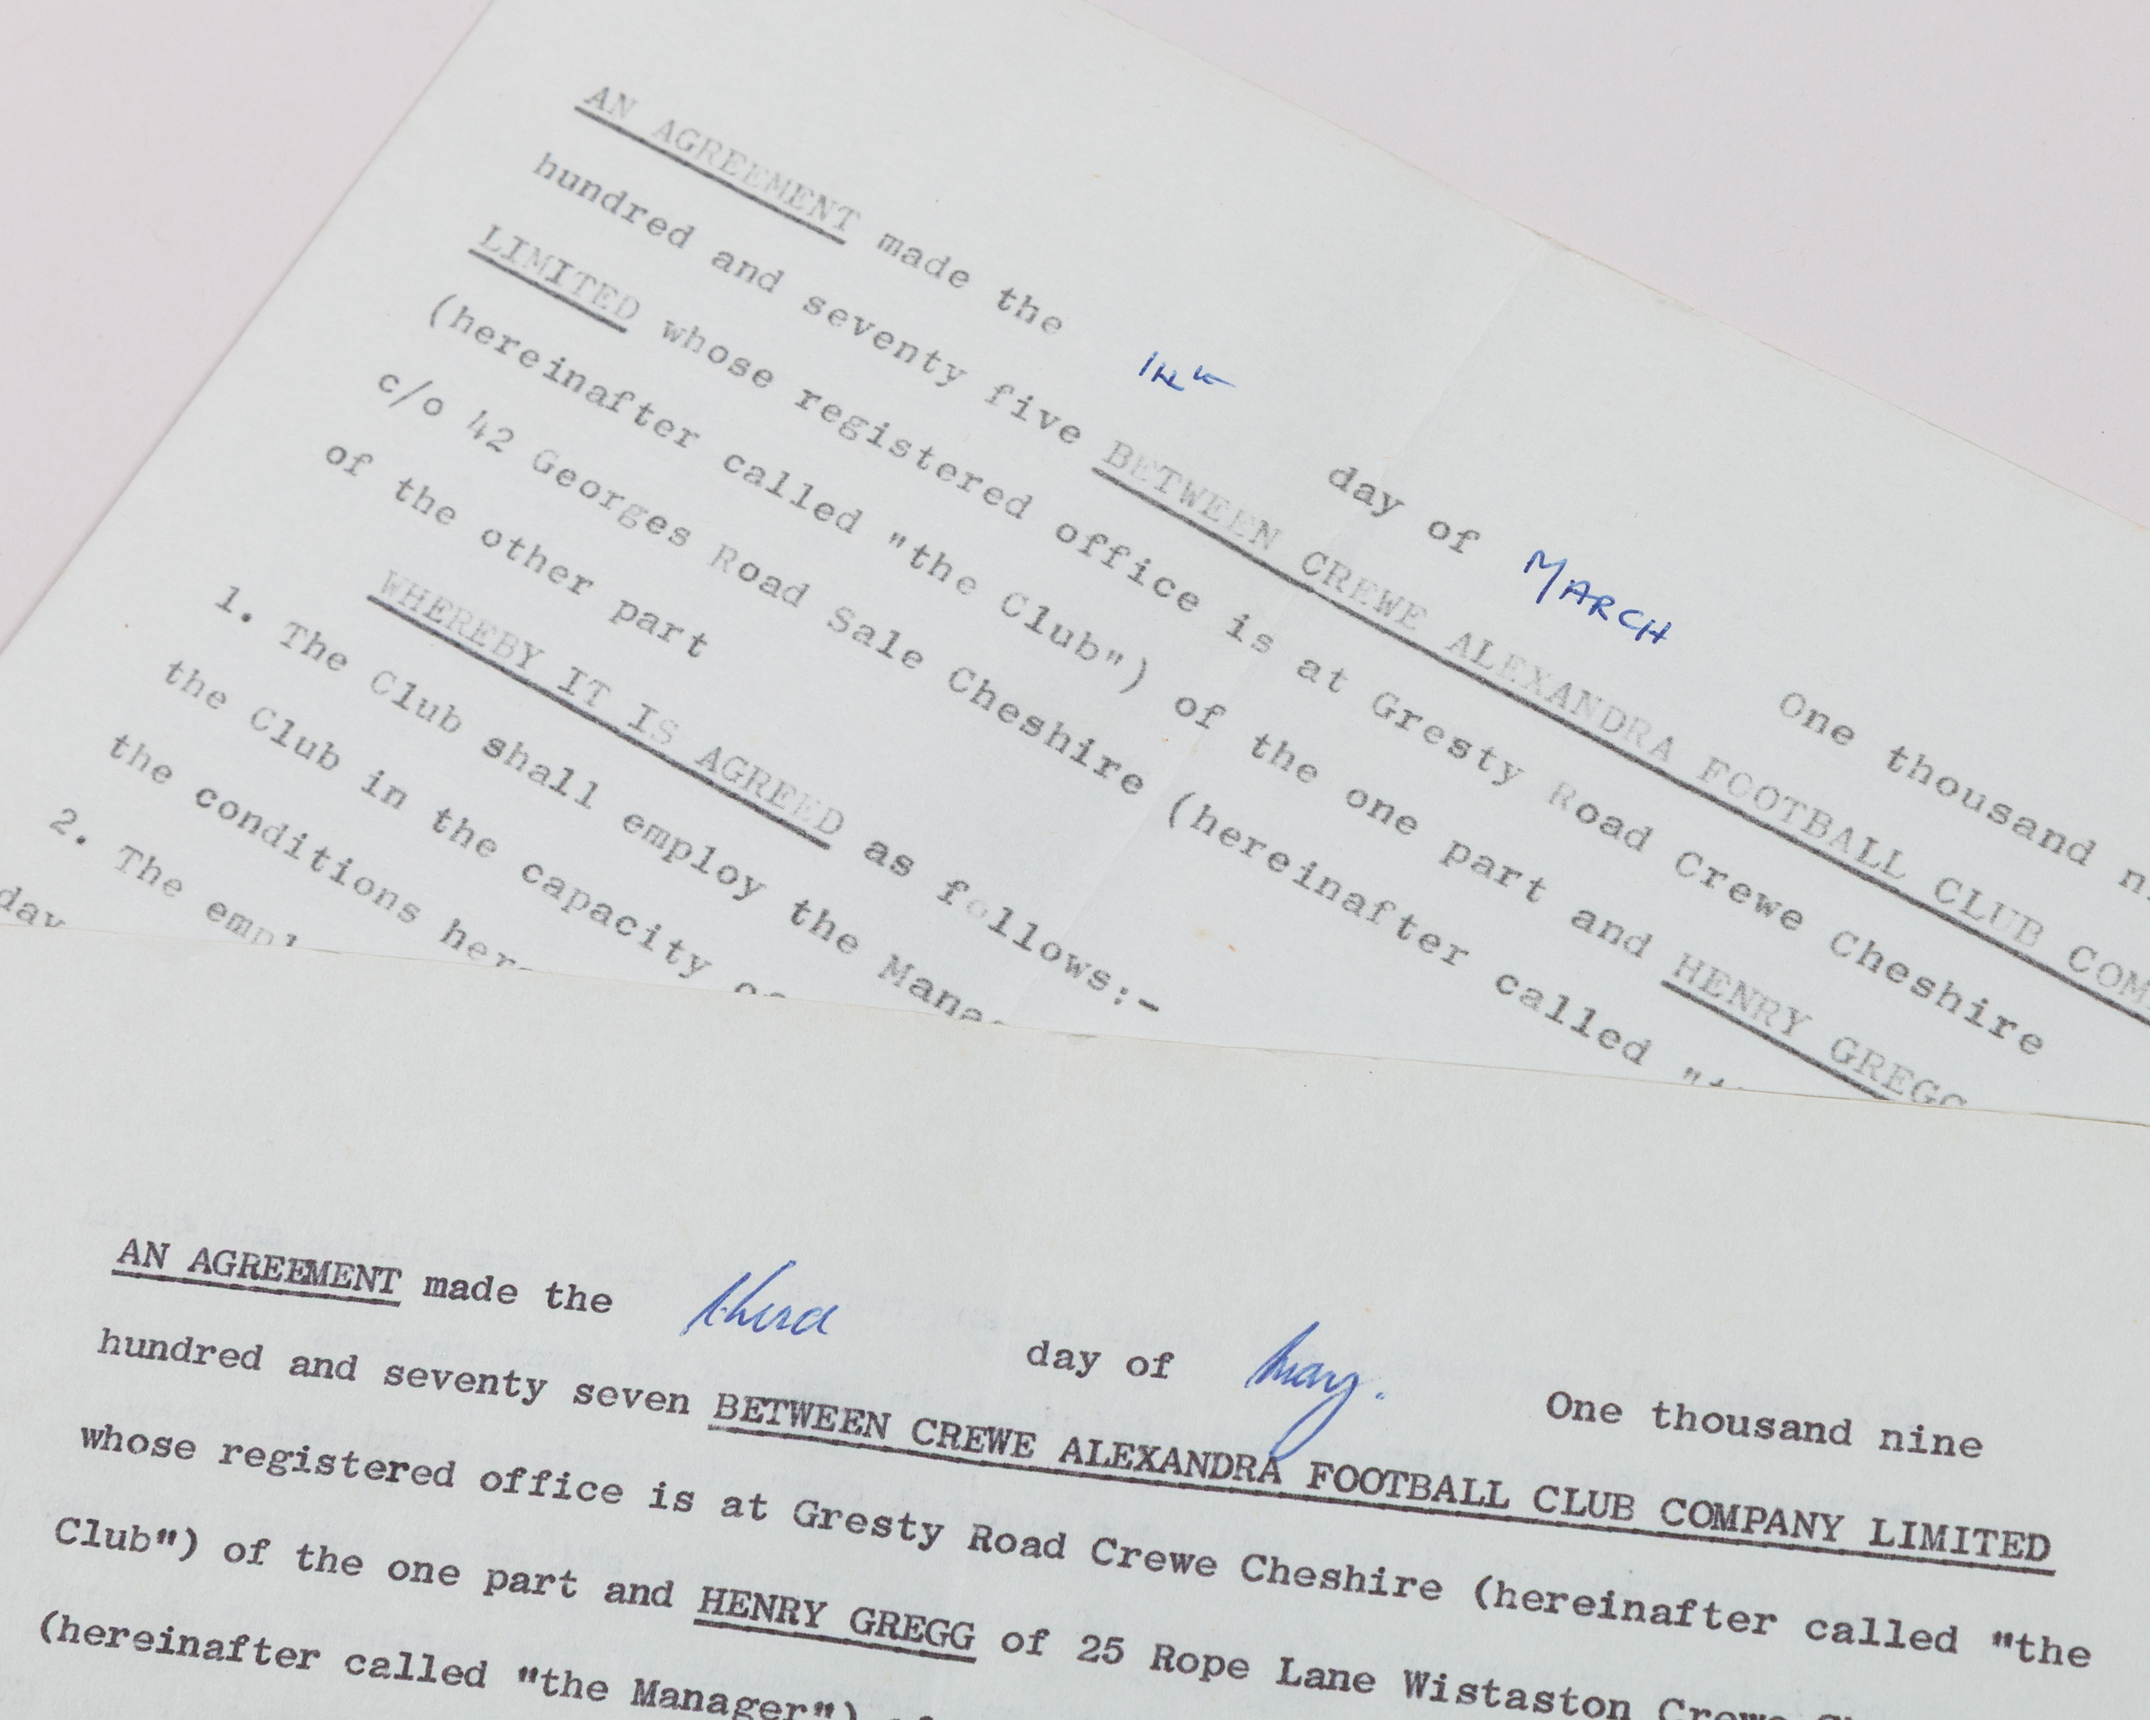 AN AGREEMENT made the day of MARCH One thousand
hundred and seventy five BETWEEN CREWE ALEXANDRA FOOTBALL CLUB COM
LIMITED whose registered office is at Gresty Road Crewe Cheshire
(hereinafter called "the Club") of the one part and HENRY GREGG
c/o 42 Georges Road Sale Cheshire (hereinafter called
of the other part
WHEREBY IT IS AGREED as follows:-
1. The Club shall employ the
the Club in the capacity
the conditions
2. The
AN AGREEMENT made the third day of May. One thousand nine
hundred and seventy seven BETWEEN CREWE ALEXANDRA FOOTBALL CLUB COMPANY LIMITED
whose registered office is at Gresty Road Crewe Cheshire (hereinafter called "the
Club") of the one part and HENRY GREGG of 25 Rope Lane Wistaston Crewe
(hereinafter called "the Manager")